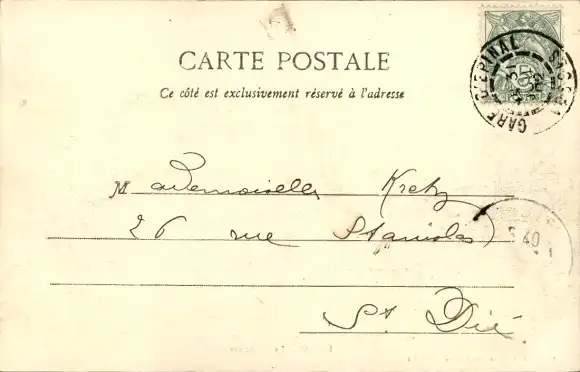 CARTE POSTALE
Ce côté est exclusivement réservé à l'adresse
GARE D'EPINAL
5
Mademoiselle Kretz
26 rue Stanislas
40
St. Dié